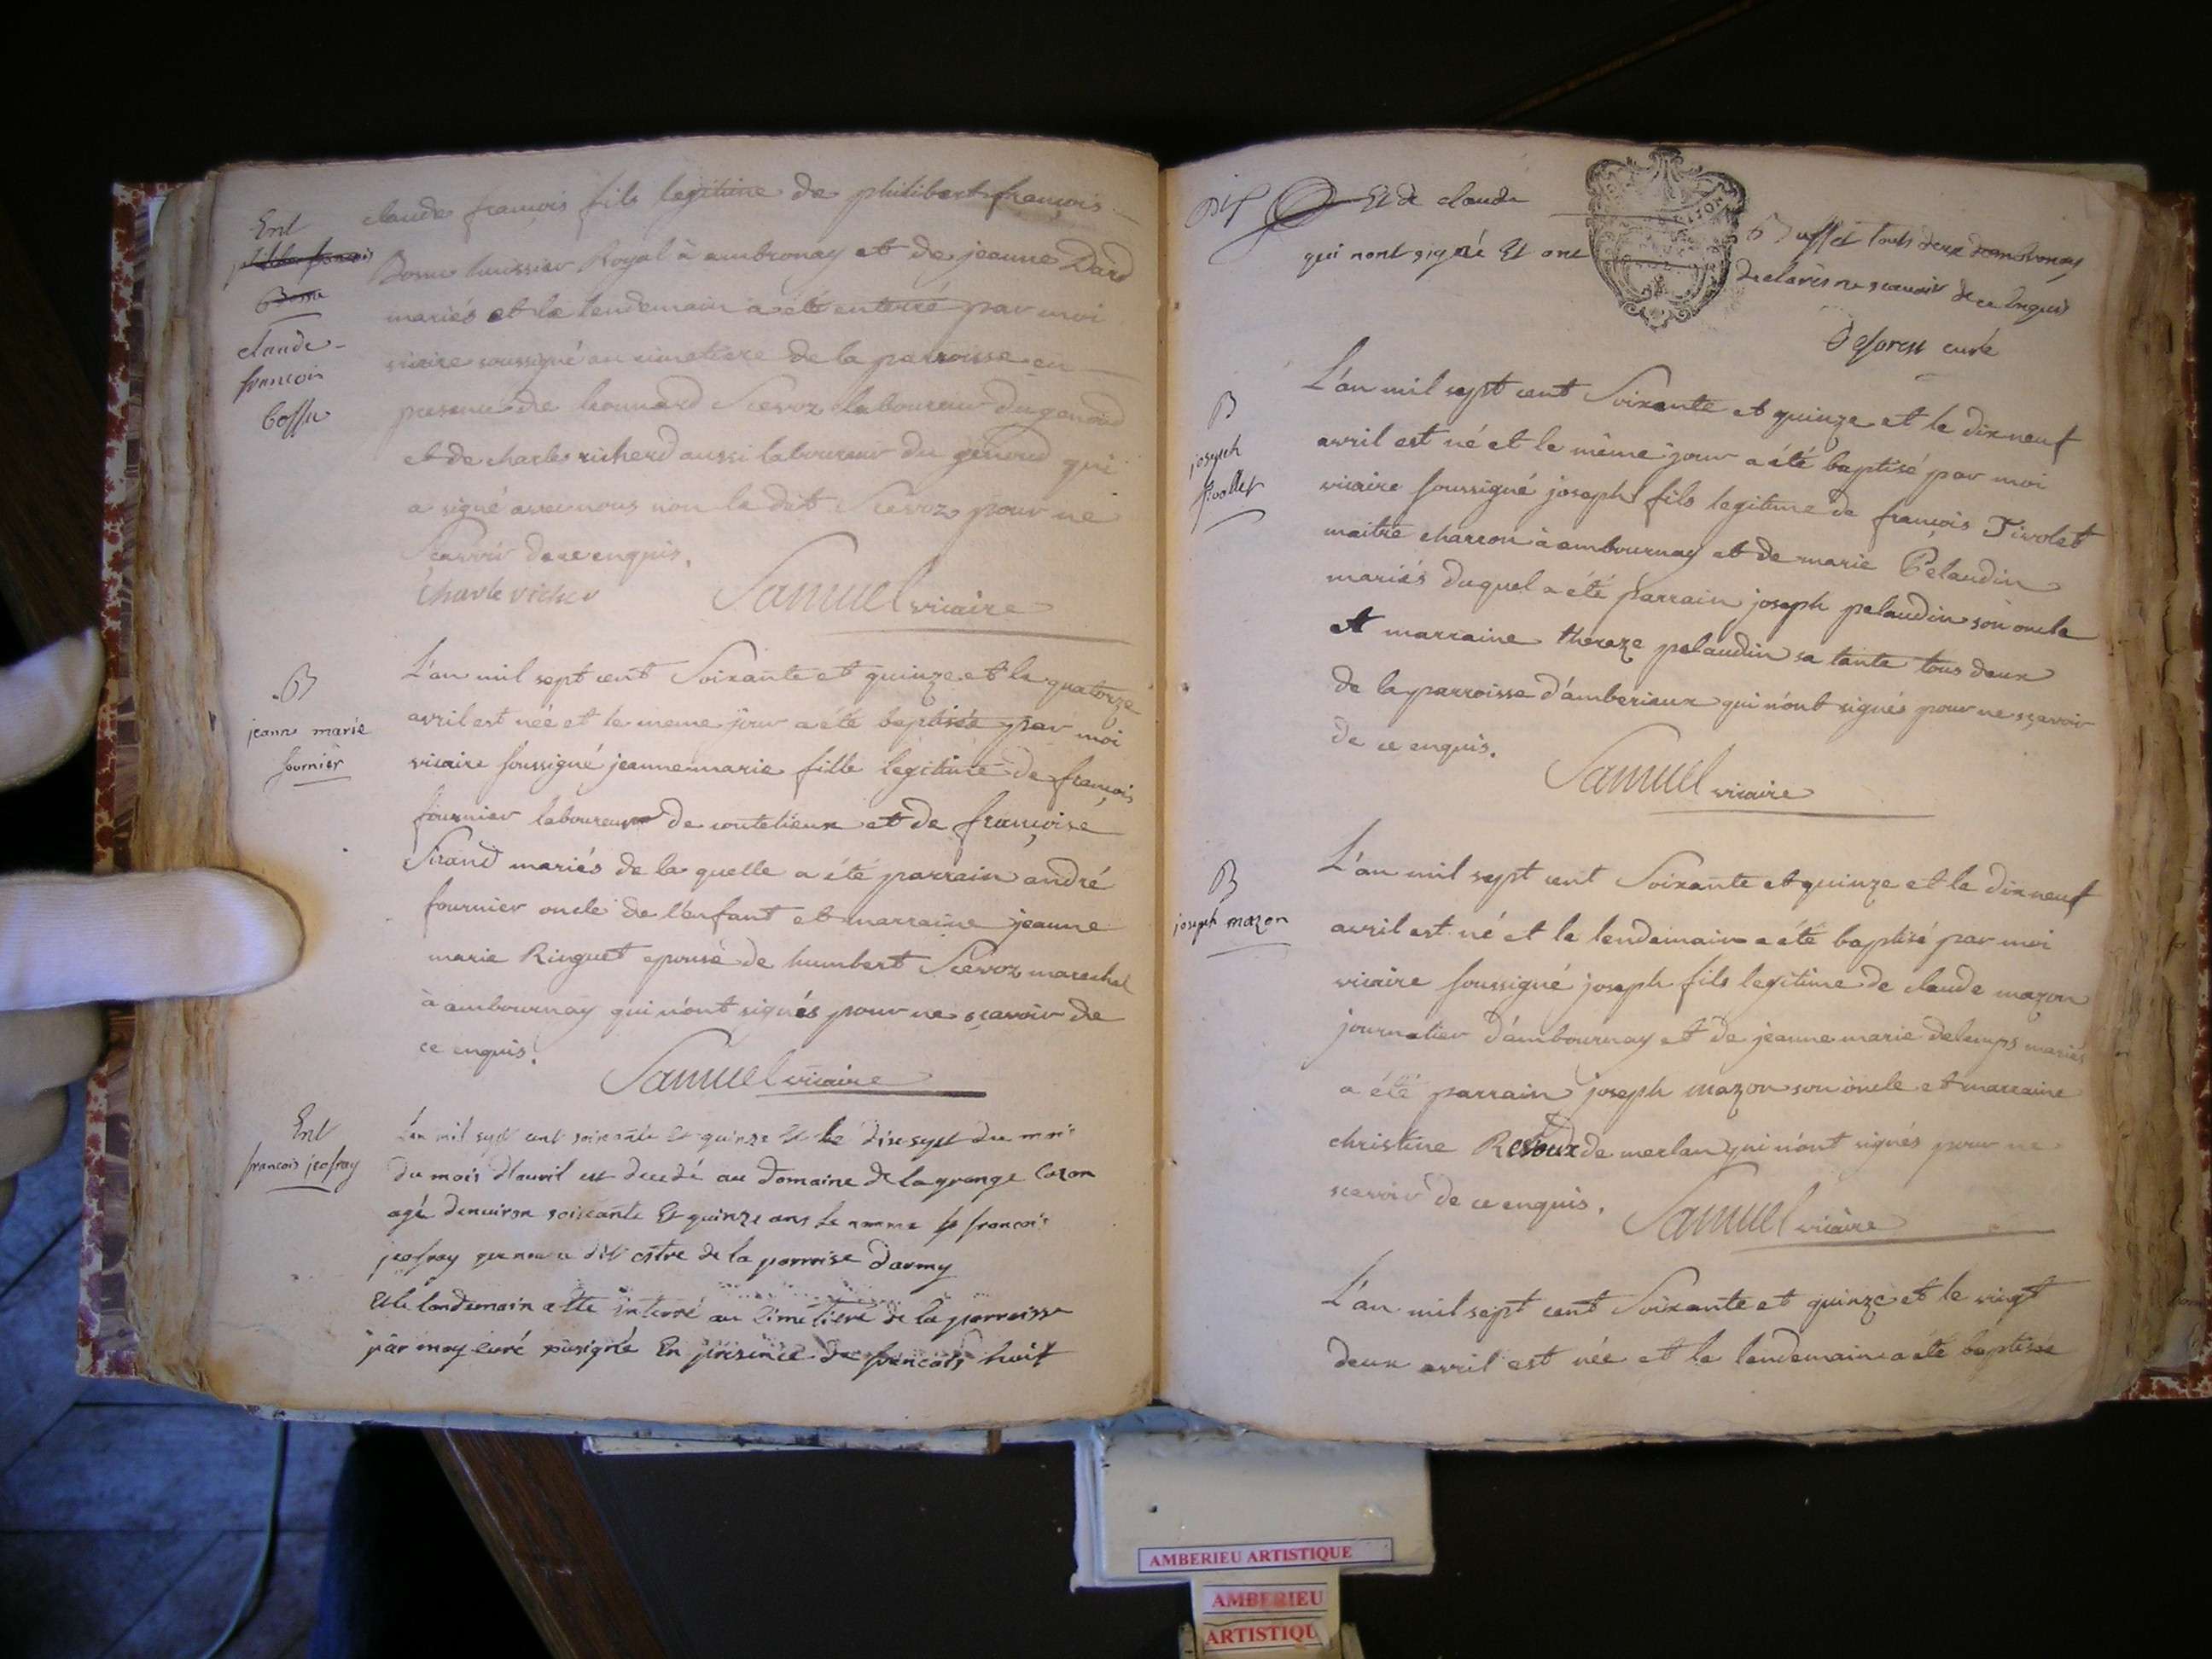 Ent
claude
francois
bossu
claude françois fils legitime de philibert françois
Bossu huissier Royal à ambronay et de jeanne Dard
mariés et le lendemain a été enterré par moi
vicaire soussigné au cimetiere de la parroisse en
presence de leonnard Scevoz laboureur du genoud
et de charle richerd aussi laboureur du genoud qui
a signé avec nous non le dit Scevoz pour ne
Scavoir de ce enquis.
Charle richer Samuel vicaire
B
jeanne marie
fournier
L'an mil sept cent Soixante et quinze et le quatorze
avril est née et le meme jour a été baptisée par moi
vicaire soussigné jeanne marie fille legitime de françois
fournier laboureur de coutelieux et de françoise
Sirand mariés de la quelle a été parrain andré
fournier oncle de l'enfant et marraine jeanne
marie Ringuet epouse de humbert Scevoz marechal
à ambournay qui n'ont signés pour ne sçavoir de
ce enquis.
Samuel vicaire
Ent
francois jeofray
Lan mil sept cent soixante et quinze et le dix sept du mois
du mois d'avril est decedé au domaine de la grange cozon
agé denviron soixante et quinze ans le nomme francois
jeofray que nous a dit estre de la parroise
Et le landemain a ette interré au cimetiere de la parroisse
par moy curé susigné En presence de francois huit
Et de claude Buffet touts deux dambronay
qui nont signé Et ont declarés ne scavoir de ce Enquis
curé
B
joseph
tivollet
L'an mil sept cent Soixante et quinze et le dix neuf
avril est né et le même jour a été baptisé par moi
vicaire soussigné joseph fils legitime de françois Tivolet
maitre charron à ambournay et de marie Pelaudin
mariés duquel a été parrain joseph pelaudin son oncle
et marraine thereze pelaudin sa tante tous deux
de la parroisse d'amberieux qui n'ont signés pour ne sçavoir
de ce enquis.
Samuel vicaire
B
joseph mazon
L'an mil sept cent Soixante et quinze et le dix neuf
avril est né et le lendemain a été baptisé par moi
vicaire soussigné joseph fils legitime de claude mazon
journalier d'ambournay et de jeanne marie delemps mariés
a été parrain joseph mazon son oncle et marraine
christine de merlan qui n'ont signés pour ne
scavoir de ce enquis. Samuel vicaire
L'an mil sept cent Soixante et quinze et le vingt
deux avril est née et le lendemain a été baptisée
AMBERIEU ARTISTIQUE
AMBERIEU
ARTISTIQU